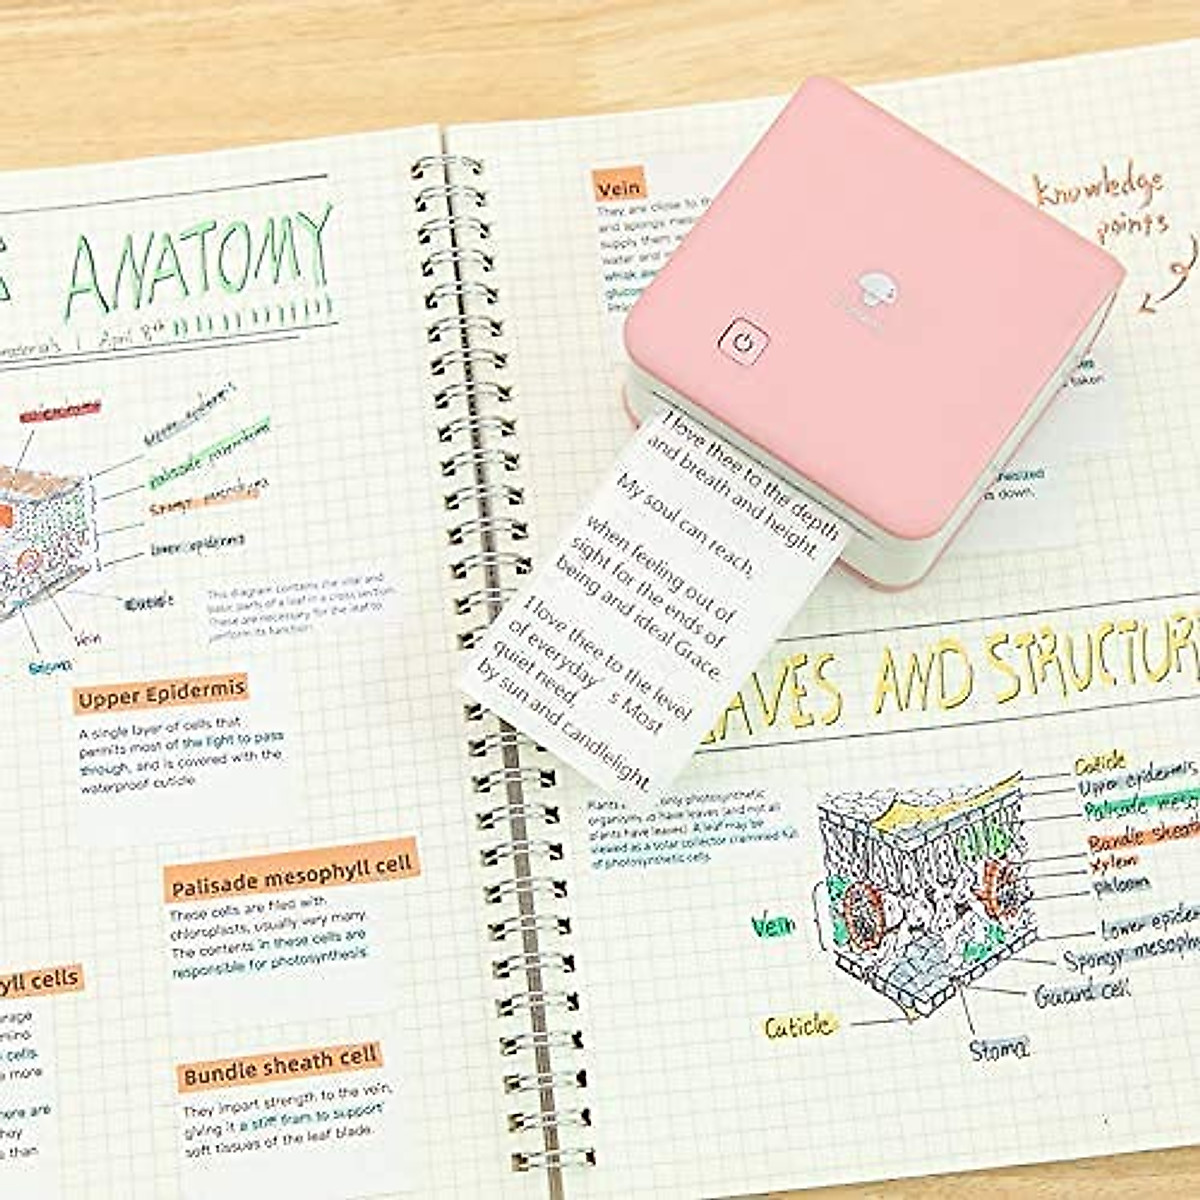 ANATOMY
April 8th
Upper epidermis
palisade parenchyma
Lower epidermis
Cuticle
Vein
Stoma
This diagram contains the vital and
basic parts of a leaf in a cross section.
These are necessary for the leaf to
perform its function.
Upper Epidermis
A single layer of cells that
permits most of the light to pass
through, and is covered with the
waterproof cuticle.
Palisade mesophyll cell
These cells are filed with
chloroplasts, usually very many.
The contents in these cells are
responsible for photosynthesis.
yll cells
cells
more
than
Bundle sheath cell
They import strength to the vein,
giving it a stiff fram to support
soft tissues of the leaf blade.
Vein
They are close to
and spongy
supply them
water and
Knowledge
points
taken
down.
I love thee to the depth
and breath and height
My soul can reach,
when feeling out of
sight for the ends of
being and ideal Grace.
I love thee to the level
of everyday' s Most
quiet need,
by sun and candlelight.
EAVES AND STRUCTUR
Plants only photosynthetic
organisms to have leaves (and not all
plants have leaves). A leaf may be
viewed as a solar collector crammed full
of photosynthetic cells.
Cuticle
Upper epidermis
Palisade meso
Bundle sheat
Xylem
phloem
Vein
Lower epider
Spongy mesophy
Guard cell
Cuticle
Stoma